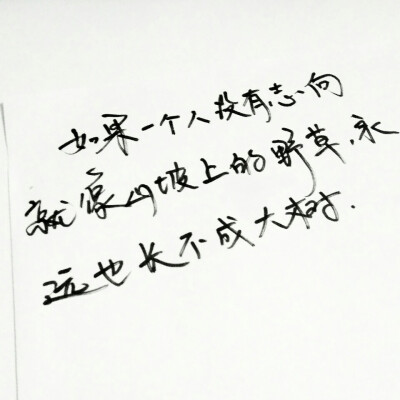 如果一个人没有志向
就像山坡上的野草,永
远也长不成大树.